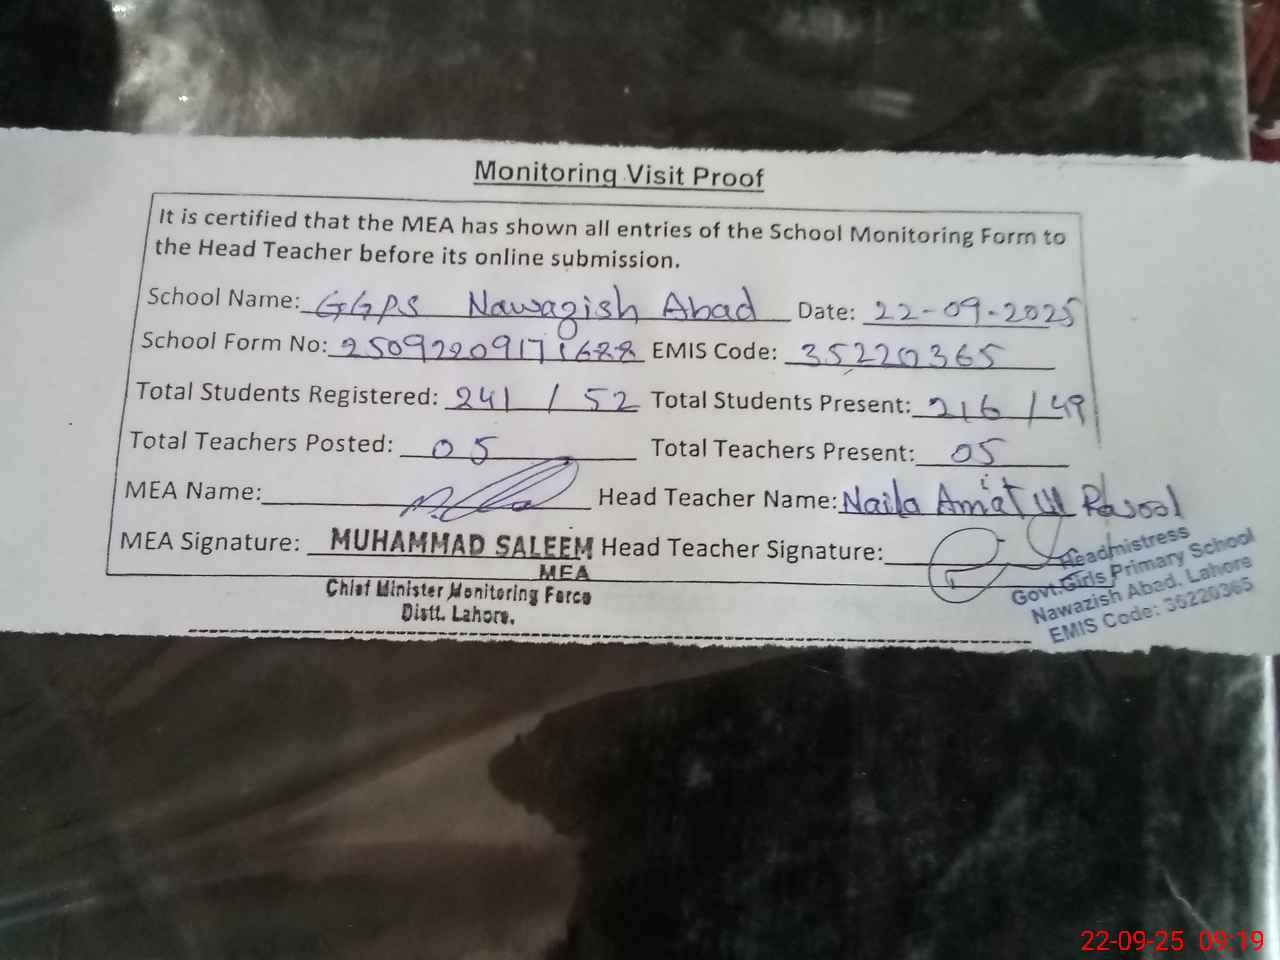 Monitoring Visit Proof
It is certified that the MEA has shown all entries of the School Monitoring Form to
the Head Teacher before its online submission.
School Name: GGPS Nawazish Abad Date: 22-09-2025
School Form No: 25092209171688 EMIS Code: 35220365
Total Students Registered: 241 / 52 Total Students Present: 216 / 49
Total Teachers Posted: 05 Total Teachers Present: 05
MEA Name: Head Teacher Name: Naila Amat Ul Rasool
MEA Signature: MUHAMMAD SALEEM Head Teacher Signature:
MEA
Chief Minister Monitoring Force
Distt. Lahore.
Headmistress
Govt. Girls Primary School
Nawazish Abad, Lahore
EMIS Code: 35220365
22-09-25 09:19